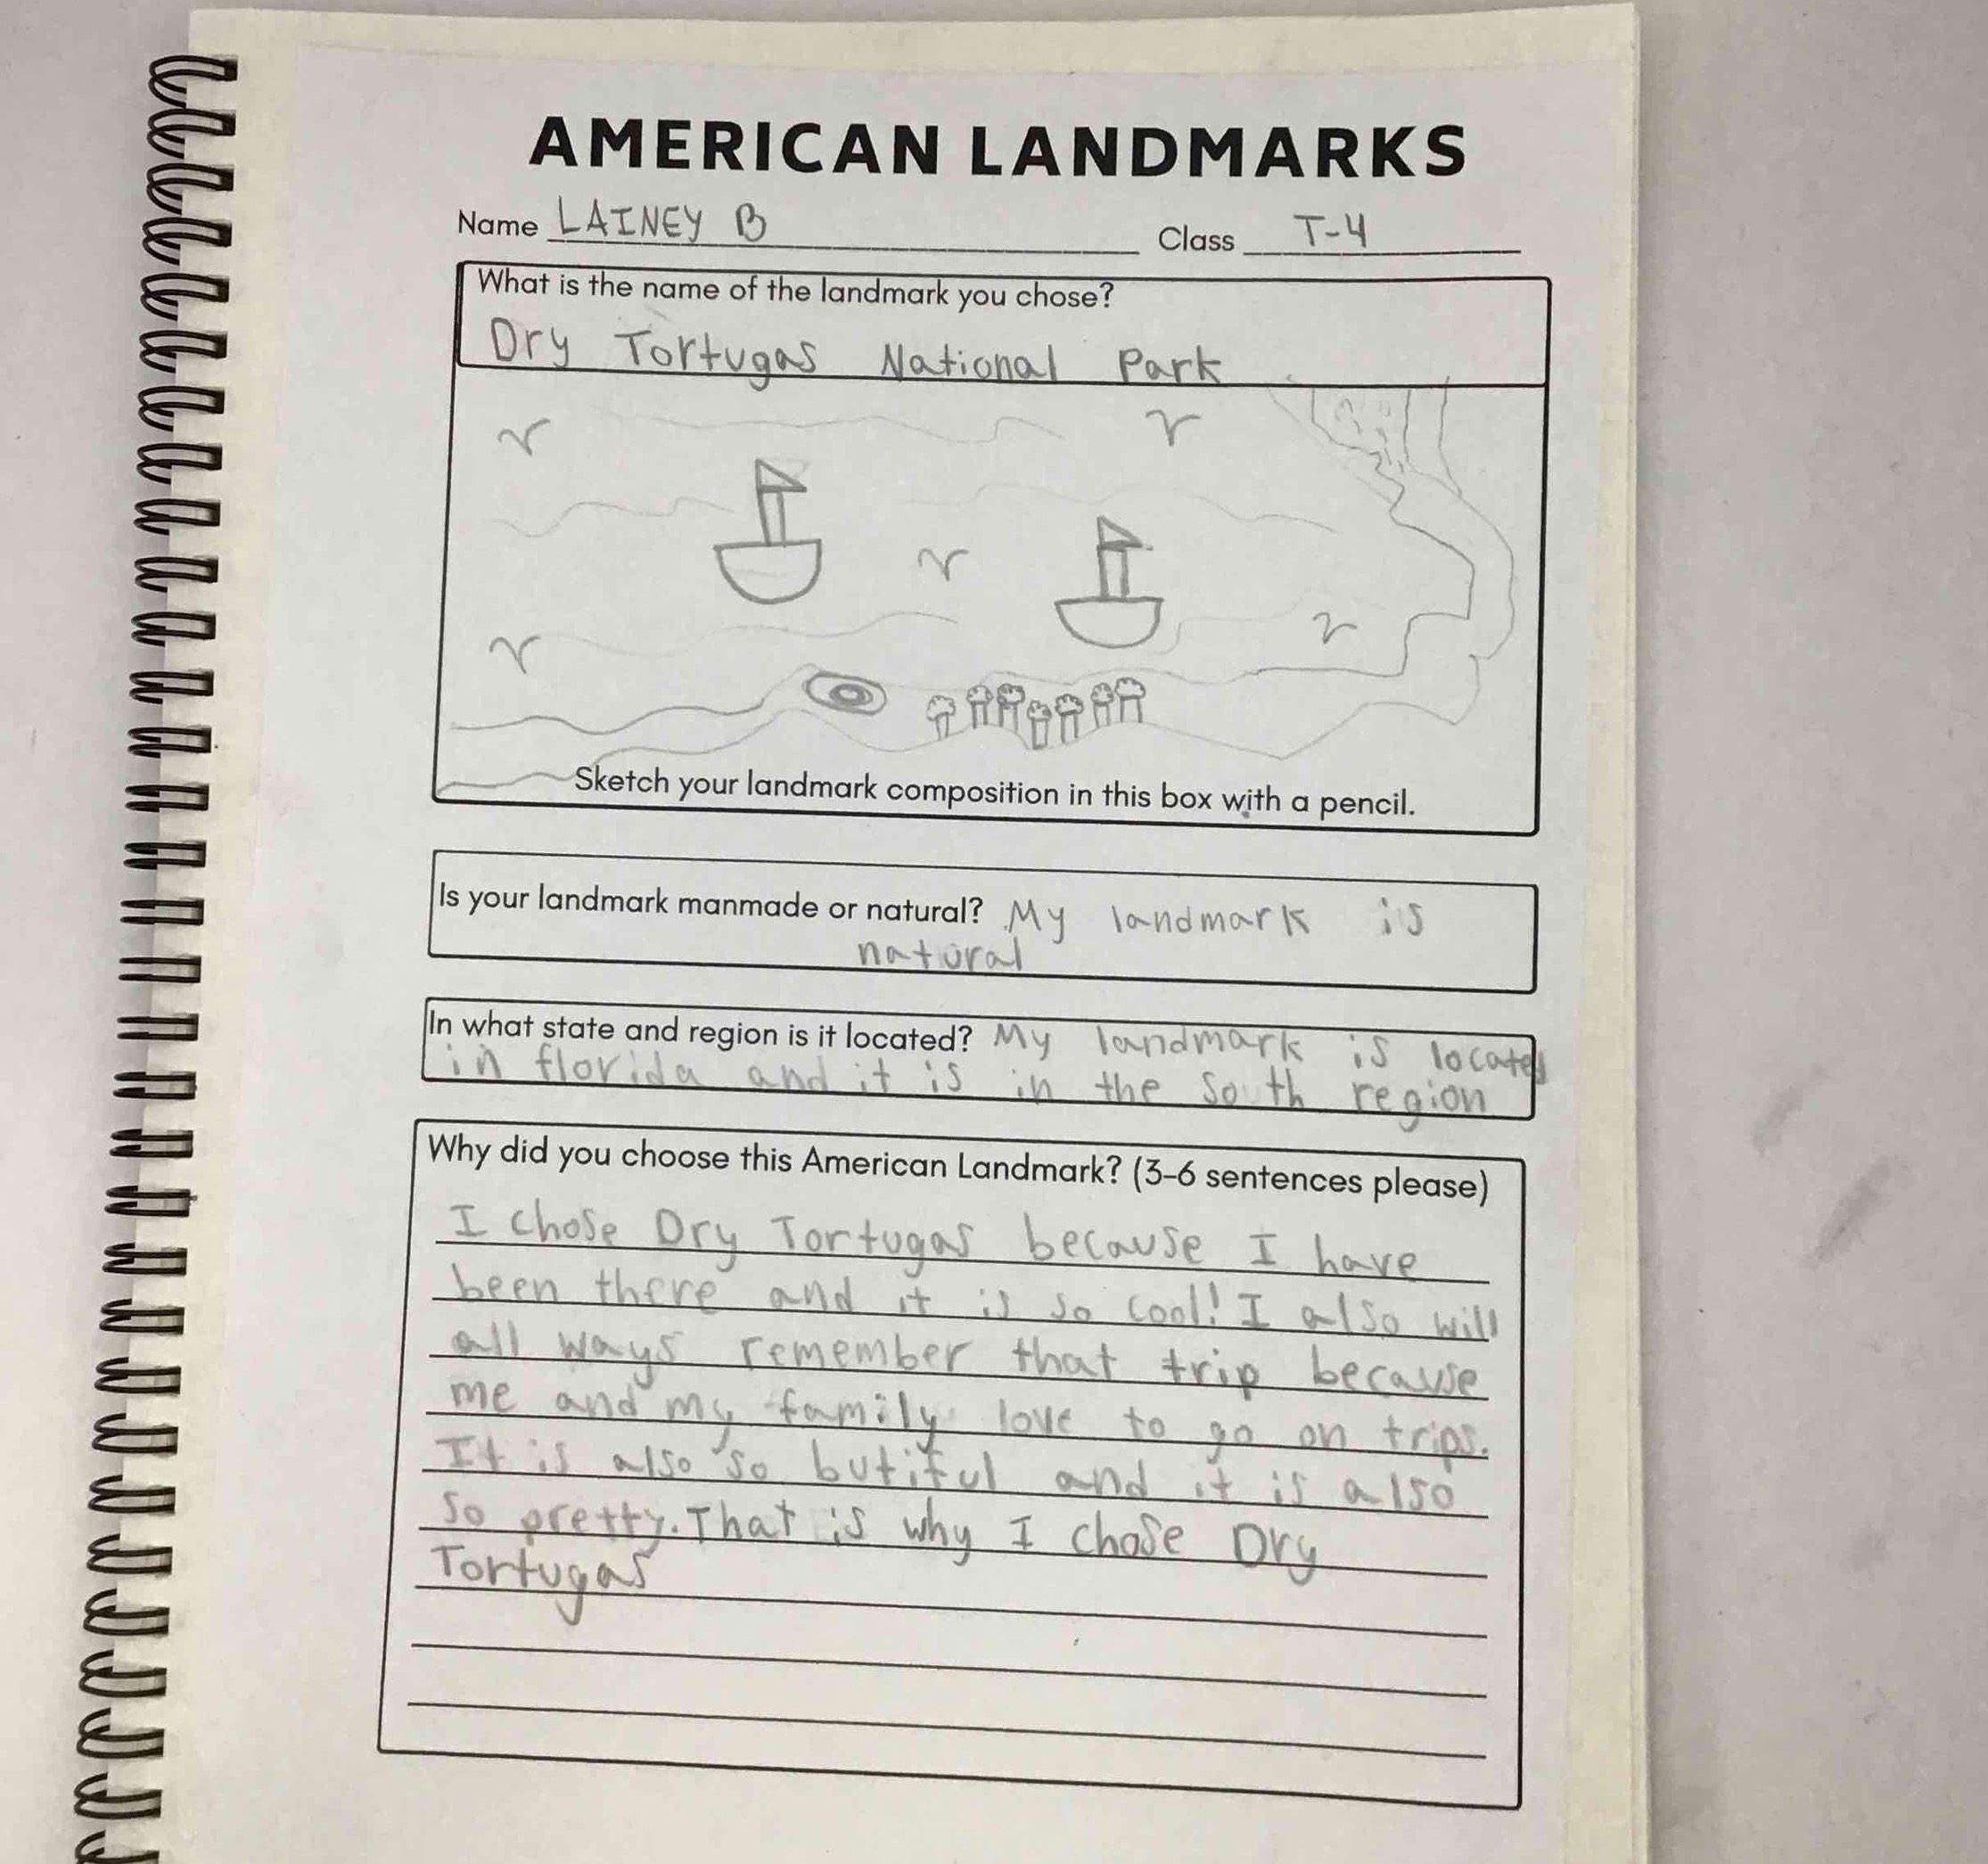 AMERICAN LANDMARKS
Name LAINEY B Class T-4
What is the name of the landmark you chose?
Dry Tortugas National Park
Sketch your landmark composition in this box with a pencil.
Is your landmark manmade or natural? My landmark is
natural
In what state and region is it located? My landmark is located
in florida and it is in the South region
Why did you choose this American Landmark? (3-6 sentences please)
I chose Dry Tortugas because I have
been there and it is so cool! I also will
all ways remember that trip because
me and my family love to go on trips.
It is also so butiful and it is also
so pretty. That is why I chose Dry
Tortugas